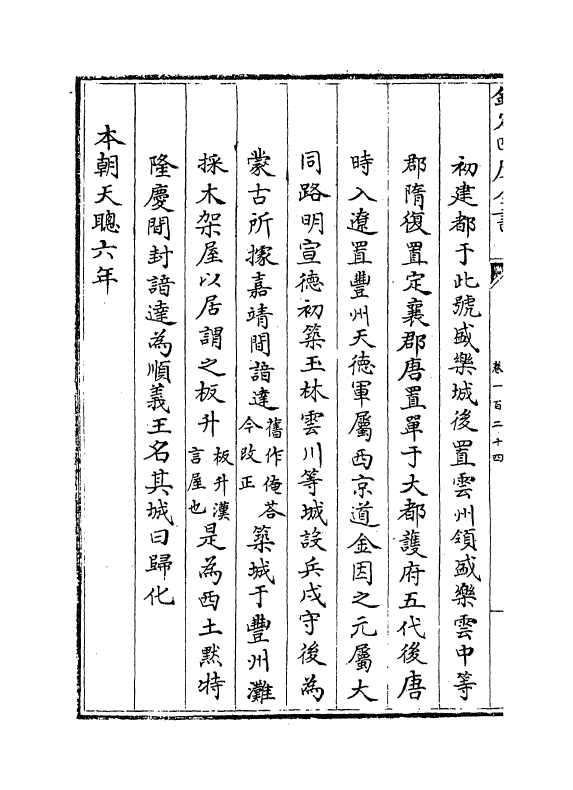 欽定四庫全書
卷一百二十四
初建都于此號盛樂城後置雲州領盛樂雲中等
郡隋復置定襄郡唐置單于大都護府五代後唐
時入遼置豐州天德軍屬西京道金因之元屬大
同路明宣德初築玉林雲川等城設兵戍守後為
蒙古所據嘉靖間諳達舊作俺荅今改正築城于豐州灘
採木架屋以居謂之板升板升漢言屋也是為西土默特
隆慶間封諳達為順義王名其城曰歸化
本朝天聰六年